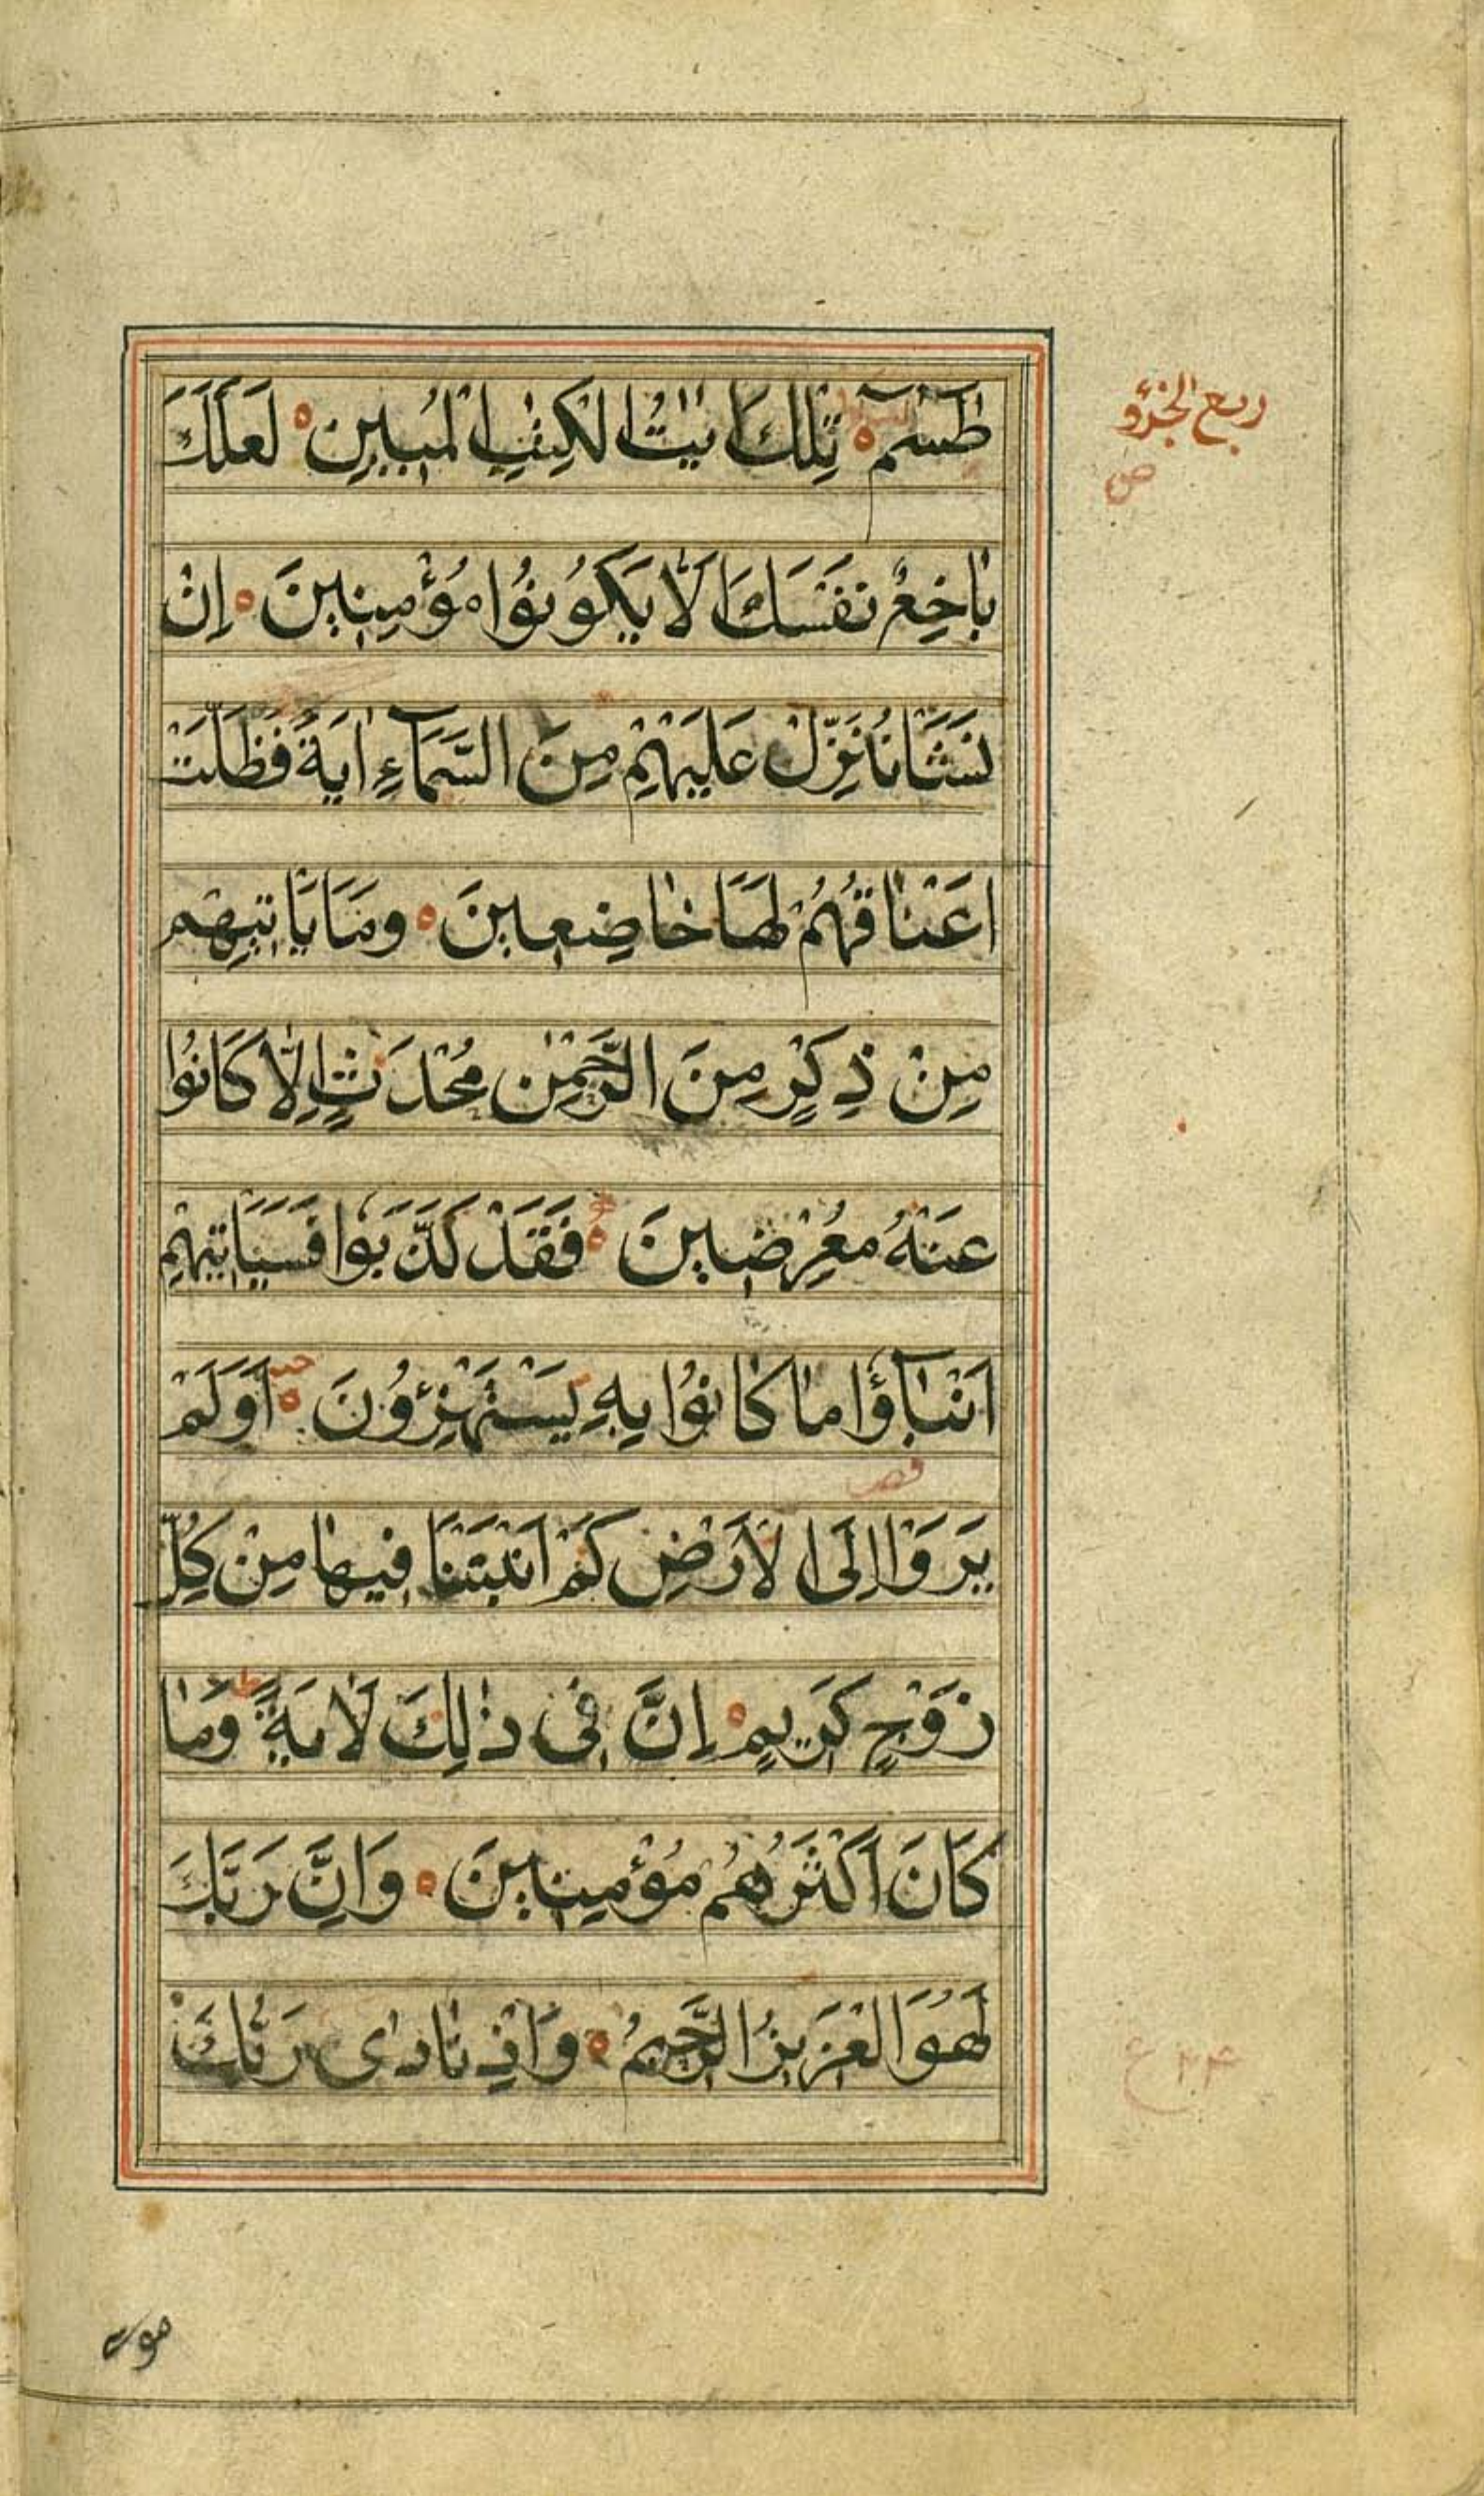 طٰسٓمٓ تِلْكَ اٰيٰتُ الْكِتٰبِ الْمُبِيْنِ لَعَلَّكَ
ربع الجزؤ
بَاخِعٌ نَفْسَكَ اَلَّا يَكُوْنُوْا مُؤْمِنِيْنَ اِنْ
نَشَأْ نُنَزِّلْ عَلَيْهِمْ مِنَ السَّمَآءِ اٰيَةً فَظَلَّتْ
اَعْنَاقُهُمْ لَهَا خَاضِعِيْنَ وَمَا يَأْتِيْهِمْ
مِنْ ذِكْرٍ مِنَ الرَّحْمٰنِ مُحْدَثٍ اِلَّا كَانُوْا
عَنْهُ مُعْرِضِيْنَ فَقَدْ كَذَّبُوْا فَسَيَأْتِيْهِمْ
اَنْبٰٓؤُا مَا كَانُوْا بِهٖ يَسْتَهْزِؤُنَ اَوَلَمْ
يَرَوْا اِلَى الْاَرْضِ كَمْ اَنْبَتْنَا فِيْهَا مِنْ كُلِّ
زَوْجٍ كَرِيْمٍ اِنَّ فِى ذٰلِكَ لَاٰيَةً وَمَا
كَانَ اَكْثَرُهُمْ مُؤْمِنِيْنَ وَاِنَّ رَبَّكَ
لَهُوَ الْعَزِيْزُ الرَّحِيْمُ وَاِذْ نَادٰى رَبُّكَ